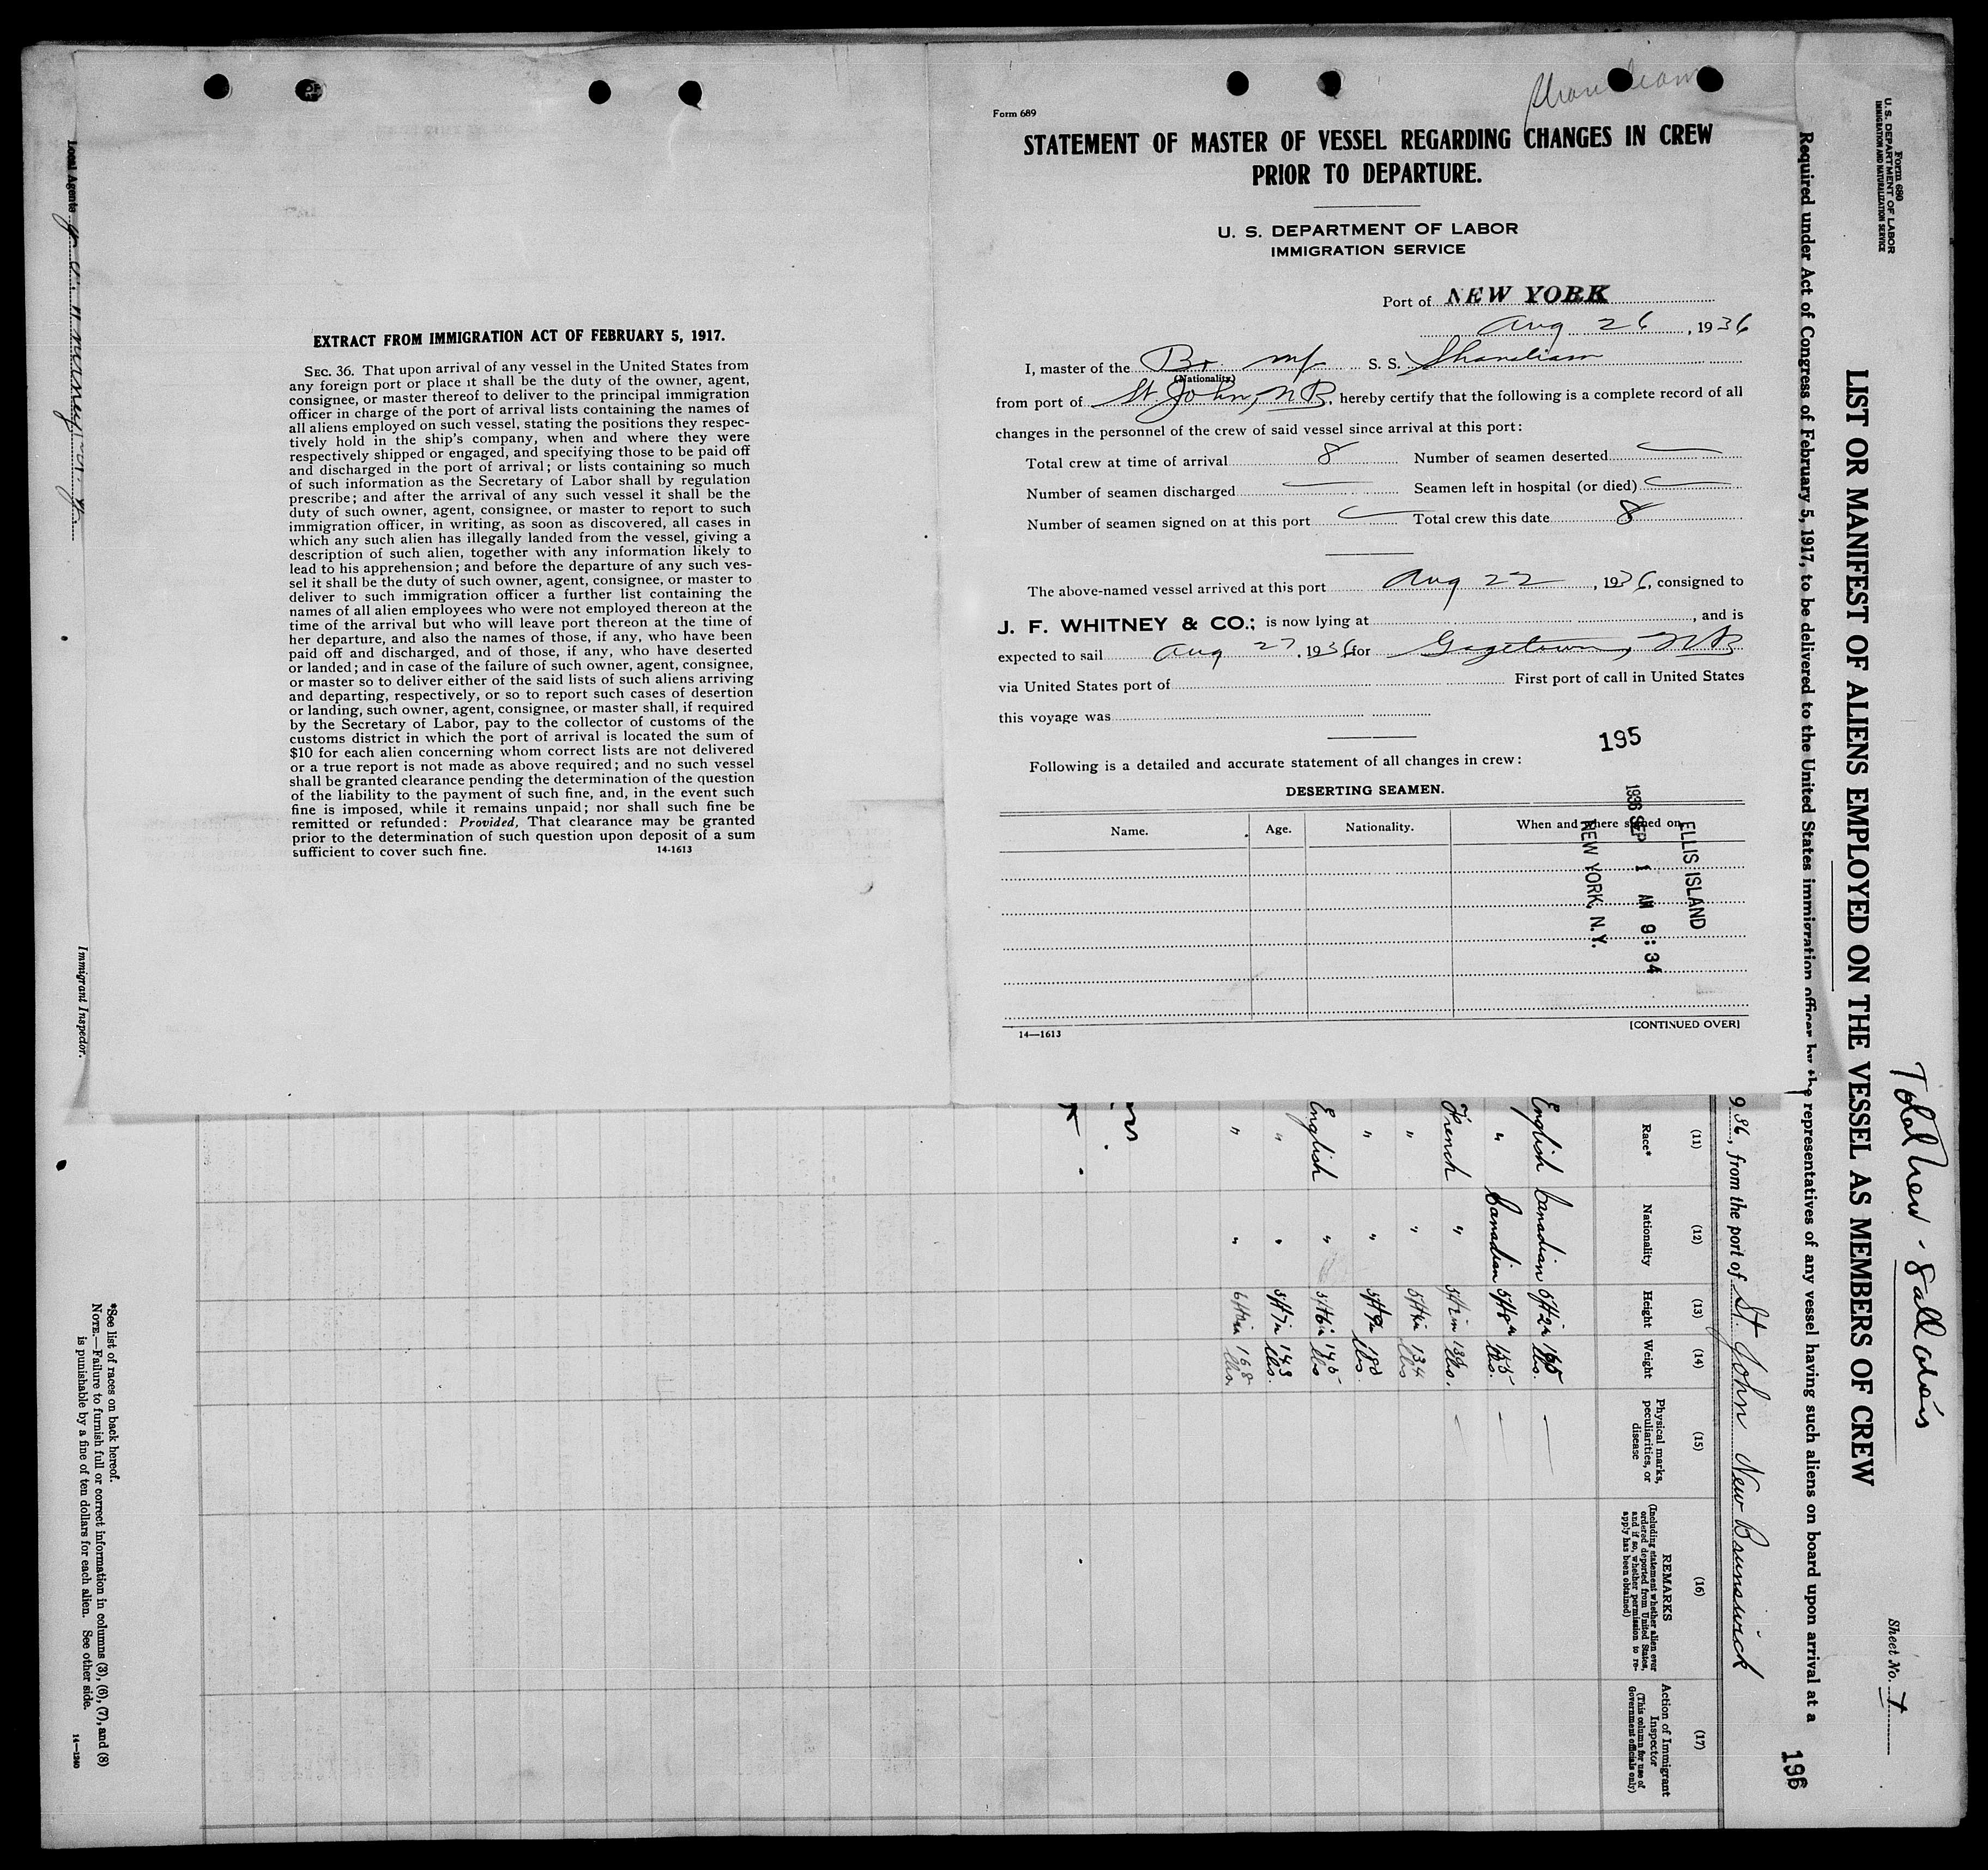 Form 689
STATEMENT OF MASTER OF VESSEL REGARDING CHANGES IN CREW
PRIOR TO DEPARTURE.
U. S. DEPARTMENT OF LABOR
IMMIGRATION SERVICE
Port of NEW YORK
Aug 26, 1936
I, master of the Br S. S.
(Nationality)
from port of St. John, NB, hereby certify that the following is a complete record of all
changes in the personnel of the crew of said vessel since arrival at this port:
Total crew at time of arrival 8 Number of seamen deserted
Number of seamen discharged Seamen left in hospital (or died)
Number of seamen signed on at this port Total crew this date 8
The above-named vessel arrived at this port Aug 22, 1936, consigned to
J. F. WHITNEY & CO.; is now lying at , and is
expected to sail Aug 27, 1936 for Gagetown, NB
via United States port of First port of call in United States
this voyage was
195
Following is a detailed and accurate statement of all changes in crew:
DESERTING SEAMEN.
Name. Age. Nationality. When and where signed on
ELLIS ISLAND
1936 SEP 1 AM 9:34
NEW YORK, N.Y.
14—1613 [CONTINUED OVER]
EXTRACT FROM IMMIGRATION ACT OF FEBRUARY 5, 1917.
SEC. 36. That upon arrival of any vessel in the United States from
any foreign port or place it shall be the duty of the owner, agent,
consignee, or master thereof to deliver to the principal immigration
officer in charge of the port of arrival lists containing the names of
all aliens employed on such vessel, stating the positions they respec-
tively hold in the ship's company, when and where they were
respectively shipped or engaged, and specifying those to be paid off
and discharged in the port of arrival; or lists containing so much
of such information as the Secretary of Labor shall by regulation
prescribe; and after the arrival of any such vessel it shall be the
duty of such owner, agent, consignee, or master to report to such
immigration officer, in writing, as soon as discovered, all cases in
which any such alien has illegally landed from the vessel, giving a
description of such alien, together with any information likely to
lead to his apprehension; and before the departure of any such ves-
sel it shall be the duty of such owner, agent, consignee, or master to
deliver to such immigration officer a further list containing the
names of all alien employees who were not employed thereon at the
time of the arrival but who will leave port thereon at the time of
her departure, and also the names of those, if any, who have been
paid off and discharged, and of those, if any, who have deserted
or landed; and in case of the failure of such owner, agent, consignee,
or master so to deliver either of the said lists of such aliens arriving
and departing, respectively, or so to report such cases of desertion
or landing, such owner, agent, consignee, or master shall, if required
by the Secretary of Labor, pay to the collector of customs of the
customs district in which the port of arrival is located the sum of
$10 for each alien concerning whom correct lists are not delivered
or a true report is not made as above required; and no such vessel
shall be granted clearance pending the determination of the question
of the liability to the payment of such fine, and, in the event such
fine is imposed, while it remains unpaid; nor shall such fine be
remitted or refunded: Provided, That clearance may be granted
prior to the determination of such question upon deposit of a sum
sufficient to cover such fine. 14-1613
Form 680
U. S. DEPARTMENT OF LABOR
IMMIGRATION AND NATURALIZATION SERVICE
Sheet No. 1
LIST OR MANIFEST OF ALIENS EMPLOYED ON THE VESSEL AS MEMBERS OF CREW
Required under Act of Congress of February 5, 1917, to be delivered to the United States immigration officer by the representatives of any vessel having such aliens on board upon arrival at a
196
36, from the port of St John New Brunswick
(11) (12) (13) (14) (15) (16) (17)
Race* Nationality Height Weight Physical marks, peculiarities, or disease
REMARKS
(Including statement whether alien ever ordered deported from United States, and if so, whether permission to re-apply has been obtained)
Action of Immigrant Inspector
(This column for use of Government officials only)
English Canadian
" Canadian
French "
" "
" "
English "
" "
" "
Local Agents
Immigrant Inspector.
*See list of races on back hereof.
NOTE.—Failure to furnish full or correct information in columns (3), (6), (7), and (8)
is punishable by a fine of ten dollars for each alien. See other side. 14—1240